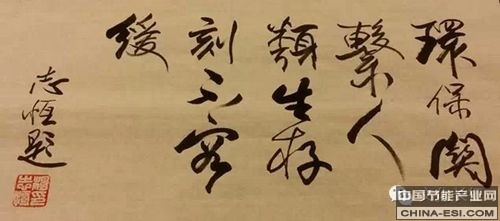 環保關
繫人
類生存
刻不容
緩
志恒題
中国节能产业网
CHINA-ESI.COM